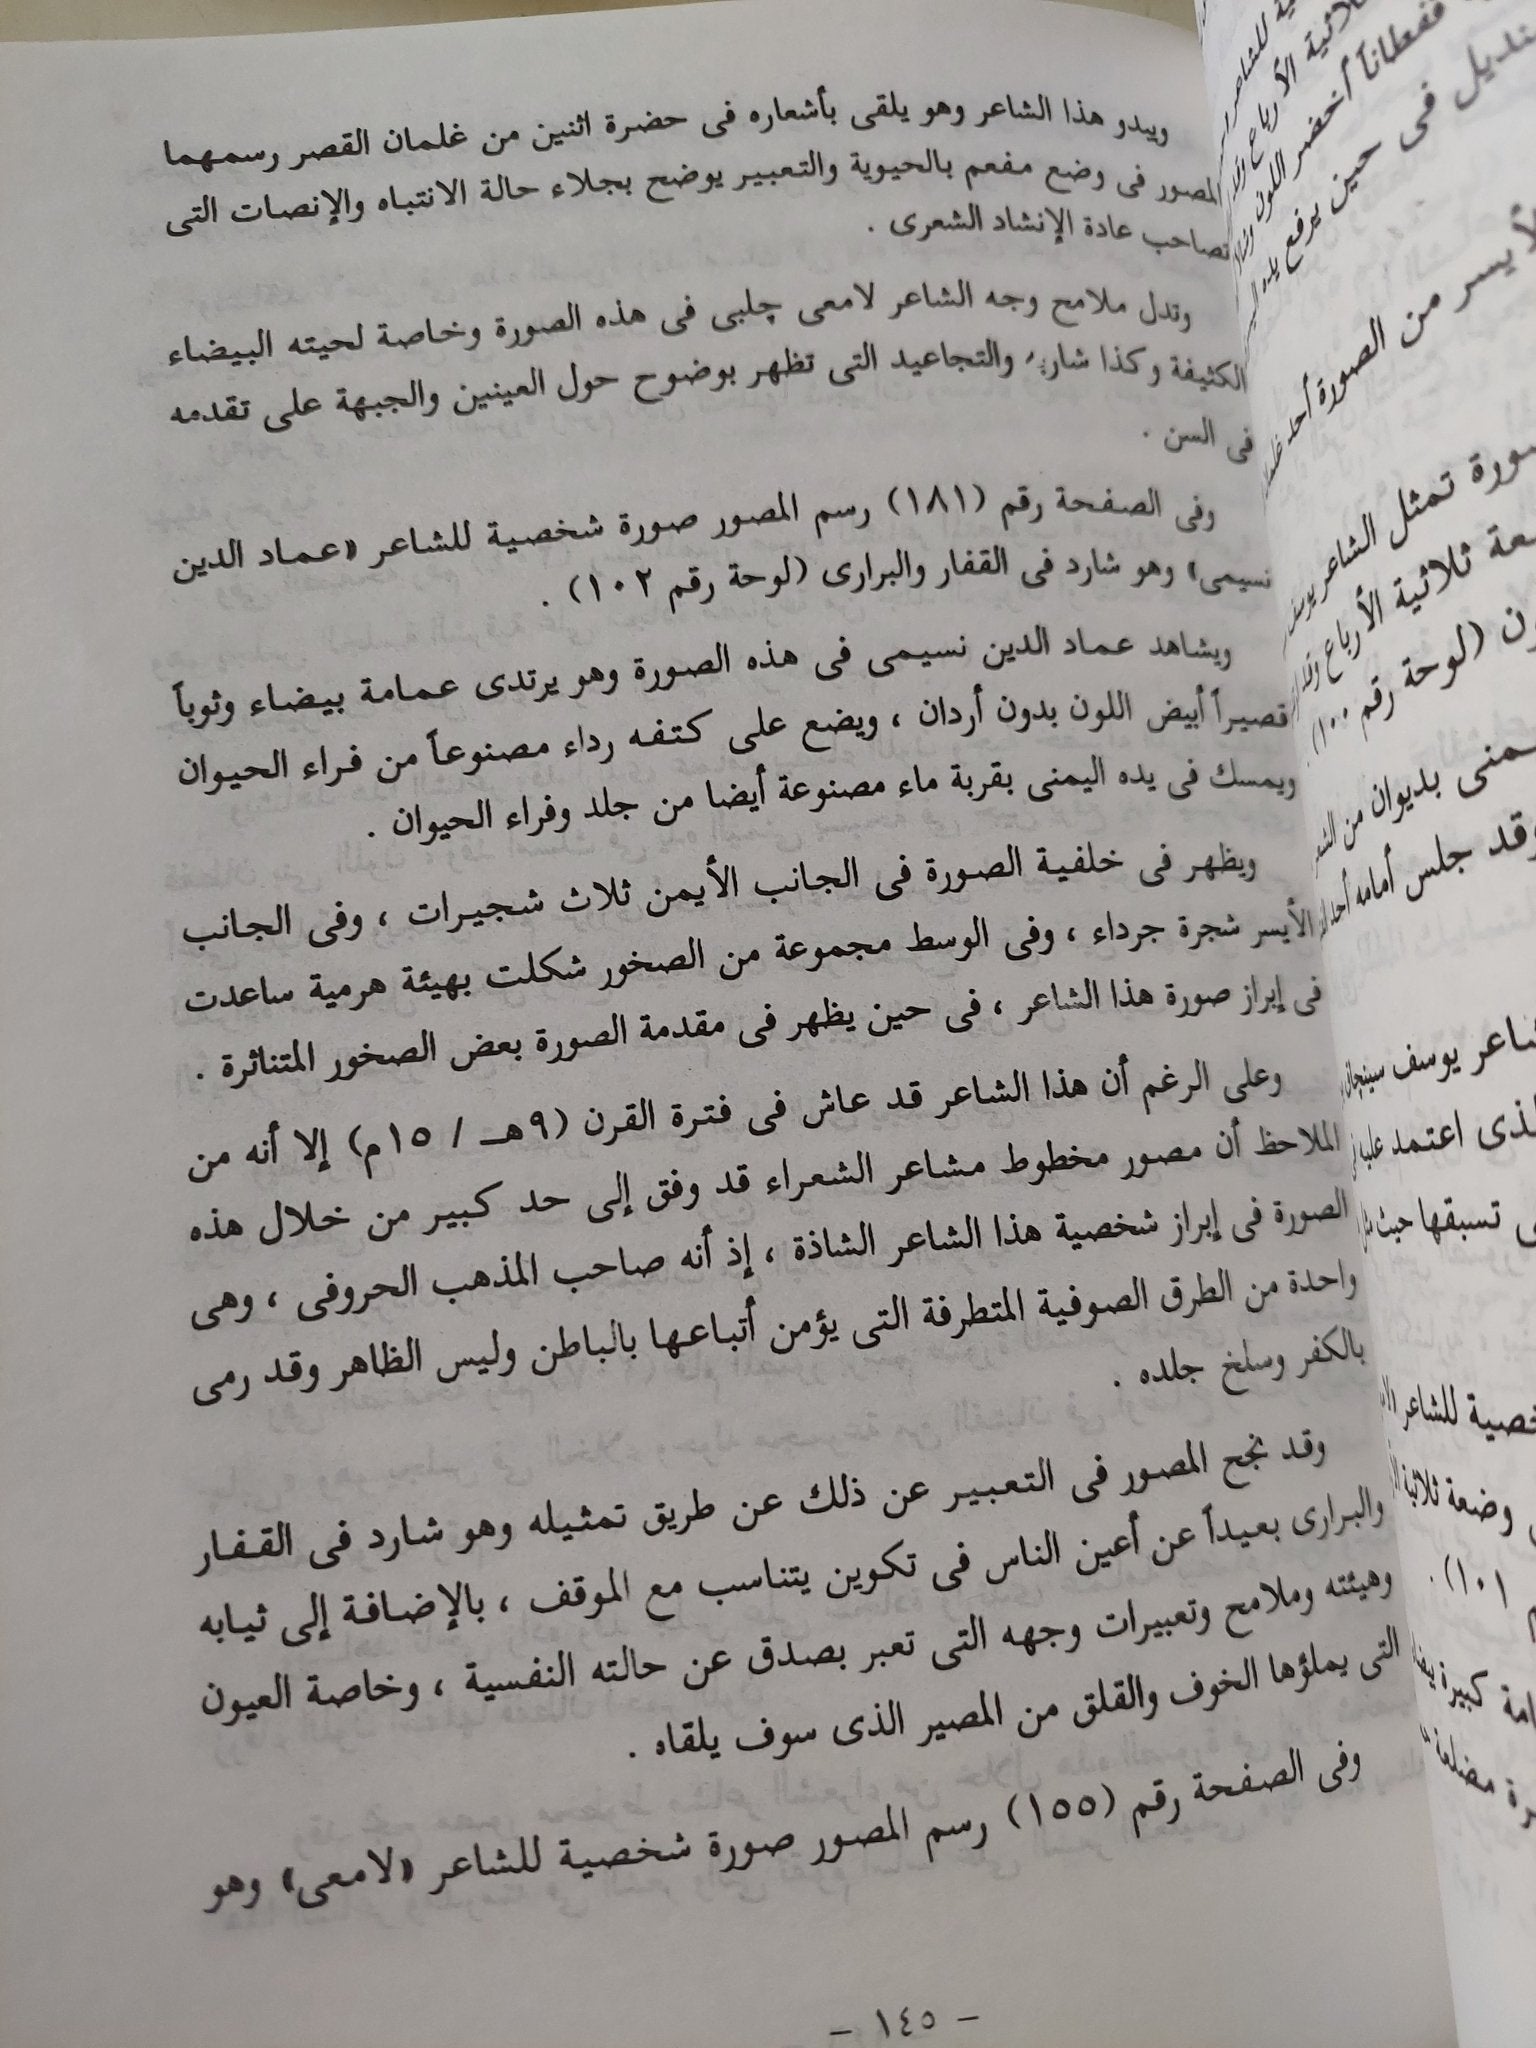 ويبدو هذا الشاعر وهو يلقى بأشعاره فى حضرة اثنين من غلمان القصر رسمهما
المصور فى وضع مفعم بالحيوية والتعبير يوضح بجلاء حالة الانتباه والإنصات التى
تصاحب عادة الإنشاد الشعرى .
وتدل ملامح وجه الشاعر لامعى چلبى فى هذه الصورة وخاصة لحيته البيضاء
الكثيفة وكذا والتجاعيد التى تظهر بوضوح حول العينين والجبهة على تقدمه
فى السن .
وفى الصفحة رقم (١٨١) رسم المصور صورة شخصية للشاعر «عماد الدين
نسيمى» وهو شارد فى القفار والبرارى (لوحة رقم ١٠٢) .
ويشاهد عماد الدين نسيمى فى هذه الصورة وهو يرتدى عمامة بيضاء وثوباً
قصيراً أبيض اللون بدون أردان ، ويضع على كتفه رداء مصنوعاً من فراء الحيوان
ويمسك فى يده اليمنى بقربة ماء مصنوعة أيضا من جلد وفراء الحيوان .
ويظهر فى خلفية الصورة فى الجانب الأيمن ثلاث شجيرات ، وفى الجانب
الأيسر شجرة جرداء ، وفى الوسط مجموعة من الصخور شكلت بهيئة هرمية ساعدت
فى إبراز صورة هذا الشاعر ، فى حين يظهر فى مقدمة الصورة بعض الصخور المتناثرة .
وعلى الرغم أن هذا الشاعر قد عاش فى فترة القرن (٩هـ / ١٥م) إلا أنه من
الملاحظ أن مصور مخطوط مشاعر الشعراء قد وفق إلى حد كبير من خلال هذه
الصورة فى إبراز شخصية هذا الشاعر الشاذة ، إذ أنه صاحب المذهب الحروفى ، وهى
واحدة من الطرق الصوفية المتطرفة التى يؤمن أتباعها بالباطن وليس الظاهر وقد رمى
بالكفر وسلخ جلده .
وقد نجح المصور فى التعبير عن ذلك عن طريق تمثيله وهو شارد فى القفار
والبرارى بعيداً عن أعين الناس فى تكوين يتناسب مع الموقف ، بالإضافة إلى ثيابه
وهيئته وملامح وتعبيرات وجهه التى تعبر بصدق عن حالته النفسية ، وخاصة العيون
التى يملؤها الخوف والقلق من المصير الذى سوف يلقاه .
وفى الصفحة رقم (١٥٥) رسم المصور صورة شخصية للشاعر «لامعى» وهو
- ١٤٥ -
أخضر اللون
فى حين يرفع يده
من الصورة أحد
تمثل الشاعر يوسف
ثلاثية الأرباع
(لوحة رقم ١٠٠)
بديوان من
وقد جلس أمامه
يوسف
اعتمد
تسبقها حيث
للشاعر
وضعة ثلاثية
١٠١) .
كبيرة